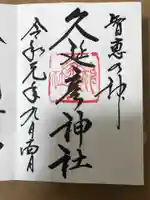 智恵の神
久延彦神社
令和元年九月四日